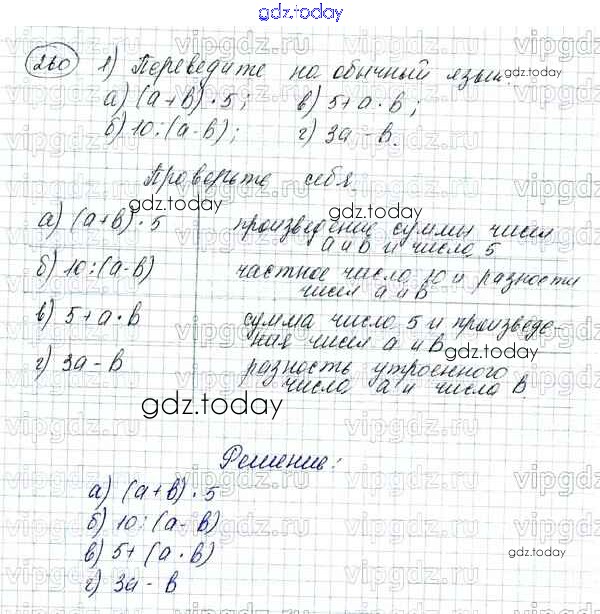 gdz.today
260 1) Переведите на обычный язык:
а) (a+b)·5; в) 5+a·b;
б) 10:(a-b); г) 3a-b.
Проверьте себя.
gdz.today gdz.today
а) (a+b)·5 произведение суммы чисел
a и b и числа 5
б) 10:(a-b) частное числа 10 и разности
чисел a и b
в) 5+a·b сумма числа 5 и произведе-
ния чисел a и b
г) 3a-b разность утроенного
числа a и числа b.
gdz.today
Решение:
а) (a+b)·5
б) 10:(a-b)
в) 5+(a·b)
г) 3a-b
gdz.today
vipgdz.ru